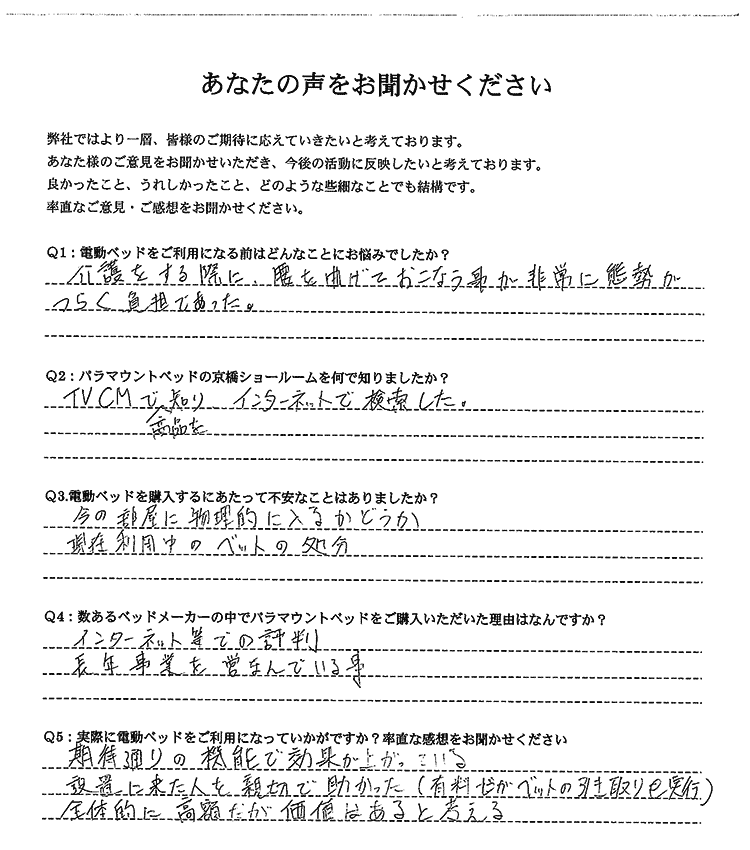 あなたの声をお聞かせください
弊社ではより一層、皆様のご期待に応えていきたいと考えております。
あなた様のご意見をお聞かせいただき、今後の活動に反映したいと考えております。
良かったこと、うれしかったこと、どのような些細なことでも結構です。
率直なご意見・ご感想をお聞かせください。
Q1：電動ベッドをご利用になる前はどんなことにお悩みでしたか？
介護をする際に、腰を曲げておこなう事が非常に態勢が
つらく負担であった。
Q2：パラマウントベッドの京橋ショールームを何で知りましたか？
TVCMで知り インターネットで検索した。
商品を
Q3.電動ベッドを購入するにあたって不安なことはありましたか？
今の部屋に物理的に入るかどうか
現在利用中のベットの処分
Q4：数あるベッドメーカーの中でパラマウントベッドをご購入いただいた理由はなんですか？
インターネット等での評判
長年事業を営なんでいる事
Q5：実際に電動ベッドをご利用になっていかがですか？率直な感想をお聞かせください
期待通りの機能で効果が上がっている
設置に来た人も親切で助かった（有料だがベットの引き取りも実行）
全体的に高額だが価値はあると考える